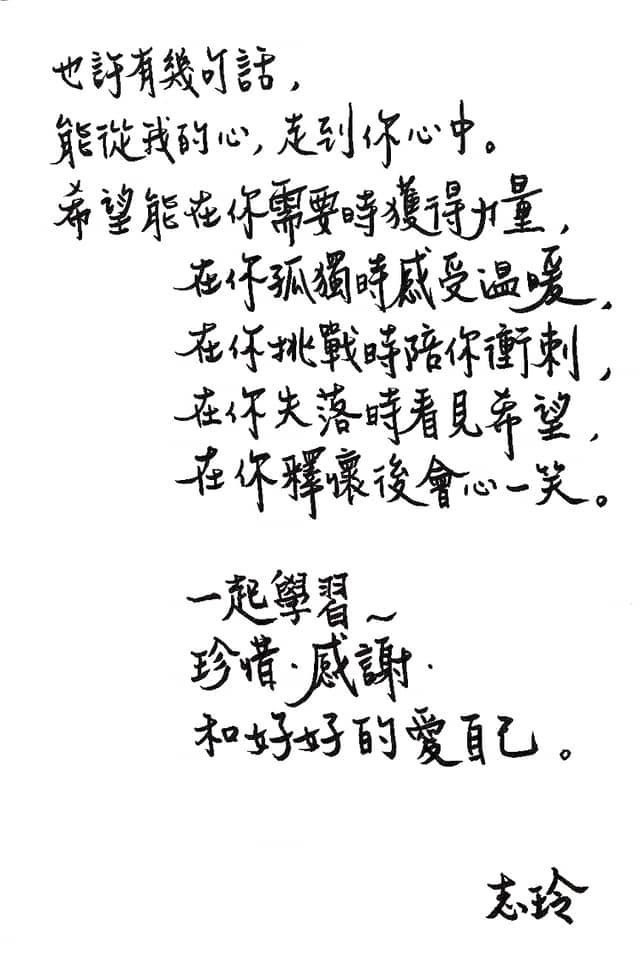 也許有幾句話，
能從我的心，走到你心中。
希望能在你需要時獲得力量，
在你孤獨時感受温暖，
在你挑戰時陪你衝刺，
在你失落時看見希望，
在你釋懷後會心一笑。
一起學習~
珍惜·感謝·
和好好的愛自己。
志玲